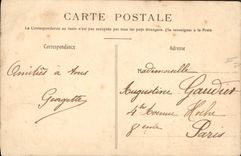 CARTE POSTALE
La Correspondance au recto n'est pas acceptée par tous les pays étrangers. (Se renseigner à la Poste)
Correspondance
Adresse
Amitiés à tous
Georgette
Mademoiselle
Augustine Gaudier
4 Avenue Hoche
8 ème
Paris